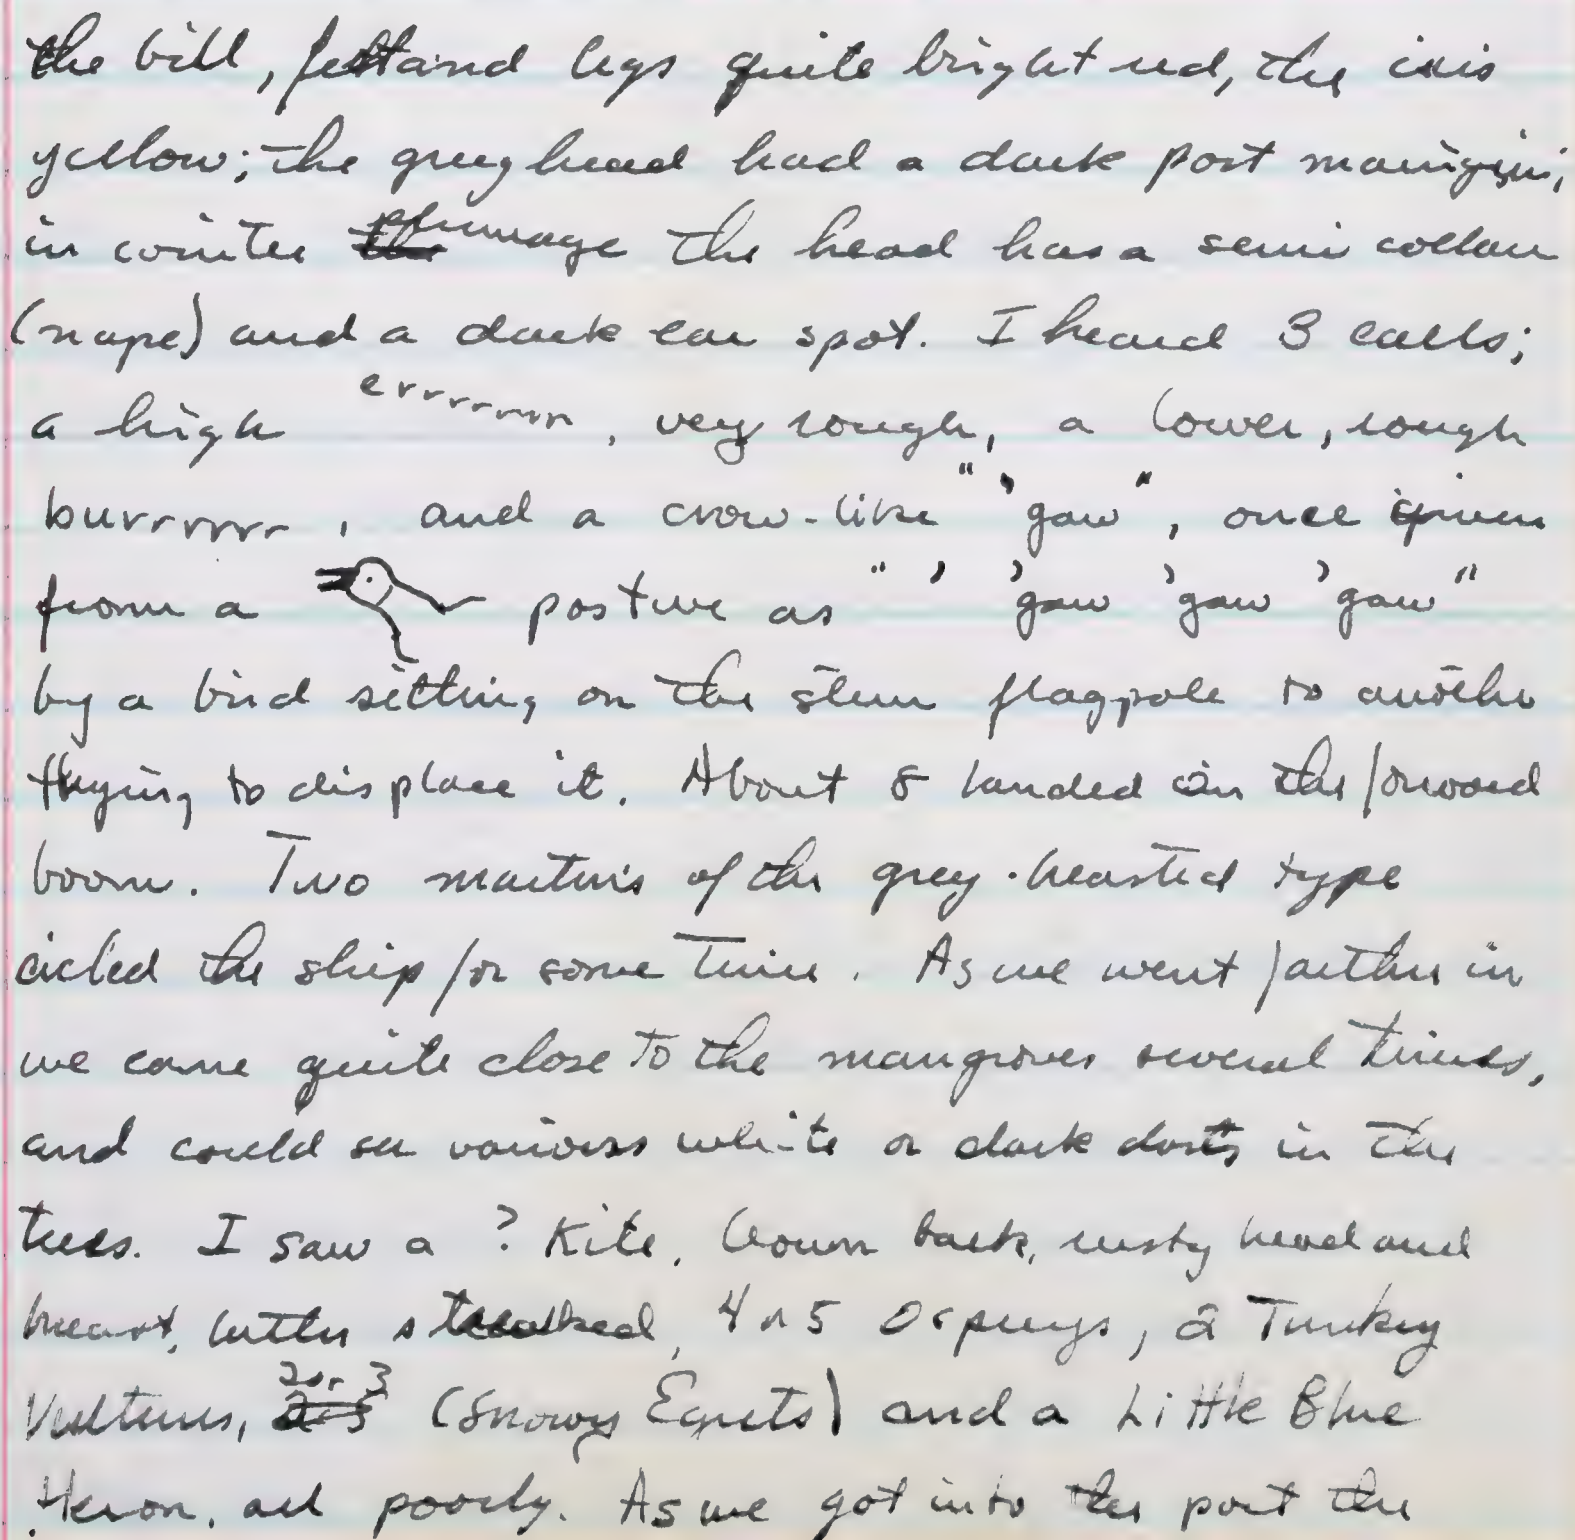 the bill, feet and legs quite bright red, the iris
yellow; the grey head had a dark post margin;
in winter plumage the head has a semi collar
(nape) and a dark ear spot. I heard 3 calls;
a high errrrrrrr, very rough, a lower, rough
burrrrrr, and a crow-like " 'gaw", once given
from a posture as " ' 'gaw 'gaw 'gaw"
by a bird sitting on the stern flagpole to another
trying to displace it. About 8 landed on the forward
boom. Two martins of the grey-breasted type
circled the ship for some time. As we went farther in
we came quite close to the mangroves several times,
and could see various white or dark dots in the
trees. I saw a ? Kite, brown back, rusty head and
breast, latter streaked, 4 or 5 Ospreys, 2 Turkey
Vultures, 2 or 3 (Snowy Egrets) and a Little Blue
Heron, all poorly. As we got into the port the